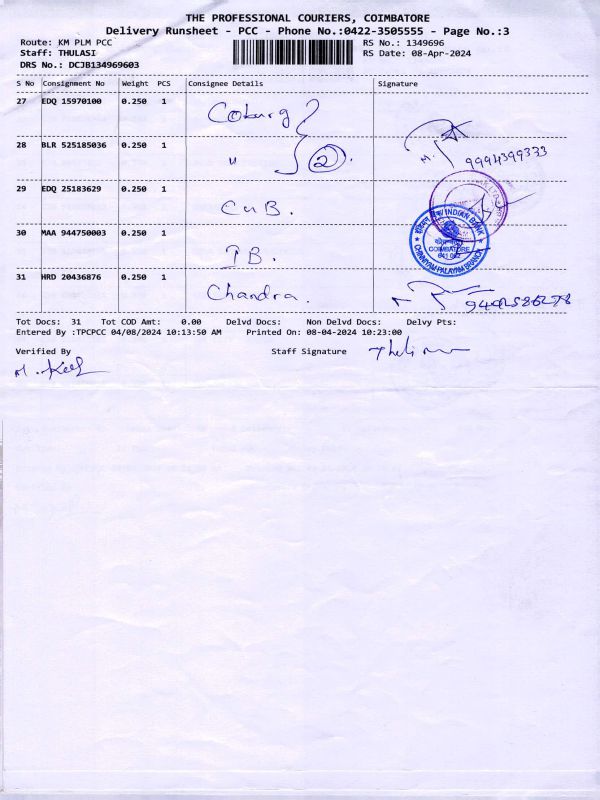 THE PROFESSIONAL COURIERS, COIMBATORE
Delivery Runsheet - PCC - Phone No.:0422-3505555 - Page No.:3
Route: KM PLM PCC RS No.: 1349696
Staff: THULASI RS Date: 08-Apr-2024
DRS No.: DCJB134969603
S No Consignment No Weight PCS Consignee Details Signature
27 EDQ 15970100 0.250 1 Coburg
28 BLR 525185036 0.250 1 " 2 9994399333
29 EDQ 25183629 0.250 1 CUB.
30 MAA 944750003 0.250 1 IB. INDIAN BANK COIMBATORE 641 062 CHINNIYAM PALAYAM BRANCH
31 HRD 20436876 0.250 1 Chandra.
Tot Docs: 31 Tot COD Amt: 0.00 Delvd Docs: Non Delvd Docs: Delvy Pts:
Entered By :TPCPCC 04/08/2024 10:13:50 AM Printed On: 08-04-2024 10:23:00
Verified By Staff Signature